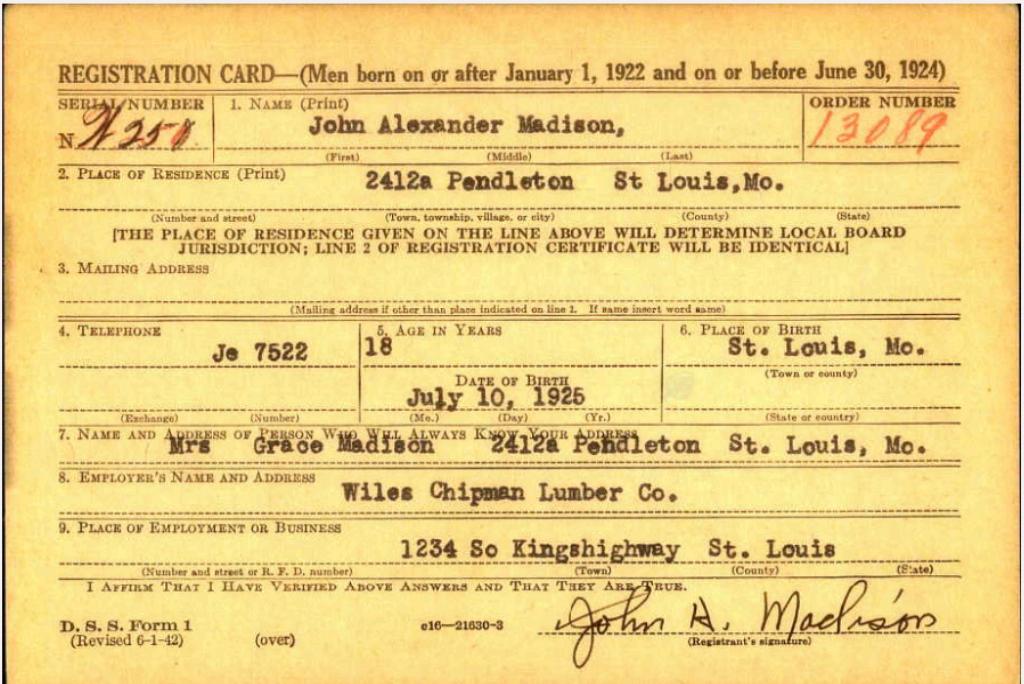 REGISTRATION CARD—(Men born on or after January 1, 1922 and on or before June 30, 1924)
SERIAL NUMBER 1. NAME (Print) ORDER NUMBER
N. W 258 John Alexander Madison, 13089
(First) (Middle) (Last)
2. PLACE OF RESIDENCE (Print) 2412a Pendleton St Louis, Mo.
(Number and street) (Town, township, village, or city) (County) (State)
[THE PLACE OF RESIDENCE GIVEN ON THE LINE ABOVE WILL DETERMINE LOCAL BOARD
JURISDICTION; LINE 2 OF REGISTRATION CERTIFICATE WILL BE IDENTICAL]
3. MAILING ADDRESS
(Mailing address if other than place indicated on line 2. If same insert word same)
4. TELEPHONE 5. AGE IN YEARS 6. PLACE OF BIRTH
Je 7522 18 St. Louis, Mo.
(Town or county)
DATE OF BIRTH
July 10, 1925
(Exchange) (Number) (Mo.) (Day) (Yr.) (State or country)
7. NAME AND ADDRESS OF PERSON WHO WILL ALWAYS KNOW YOUR ADDRESS
Mrs Grace Madison 2412a Pendleton St. Louis, Mo.
8. EMPLOYER'S NAME AND ADDRESS
Wiles Chipman Lumber Co.
9. PLACE OF EMPLOYMENT OR BUSINESS
1234 So Kingshighway St. Louis
(Number and street or R. F. D. number) (Town) (County) (State)
I AFFIRM THAT I HAVE VERIFIED ABOVE ANSWERS AND THAT THEY ARE TRUE.
D. S. S. Form 1 c16—21630-3 John H. Madison
(Revised 6-1-42) (over) (Registrant's signature)